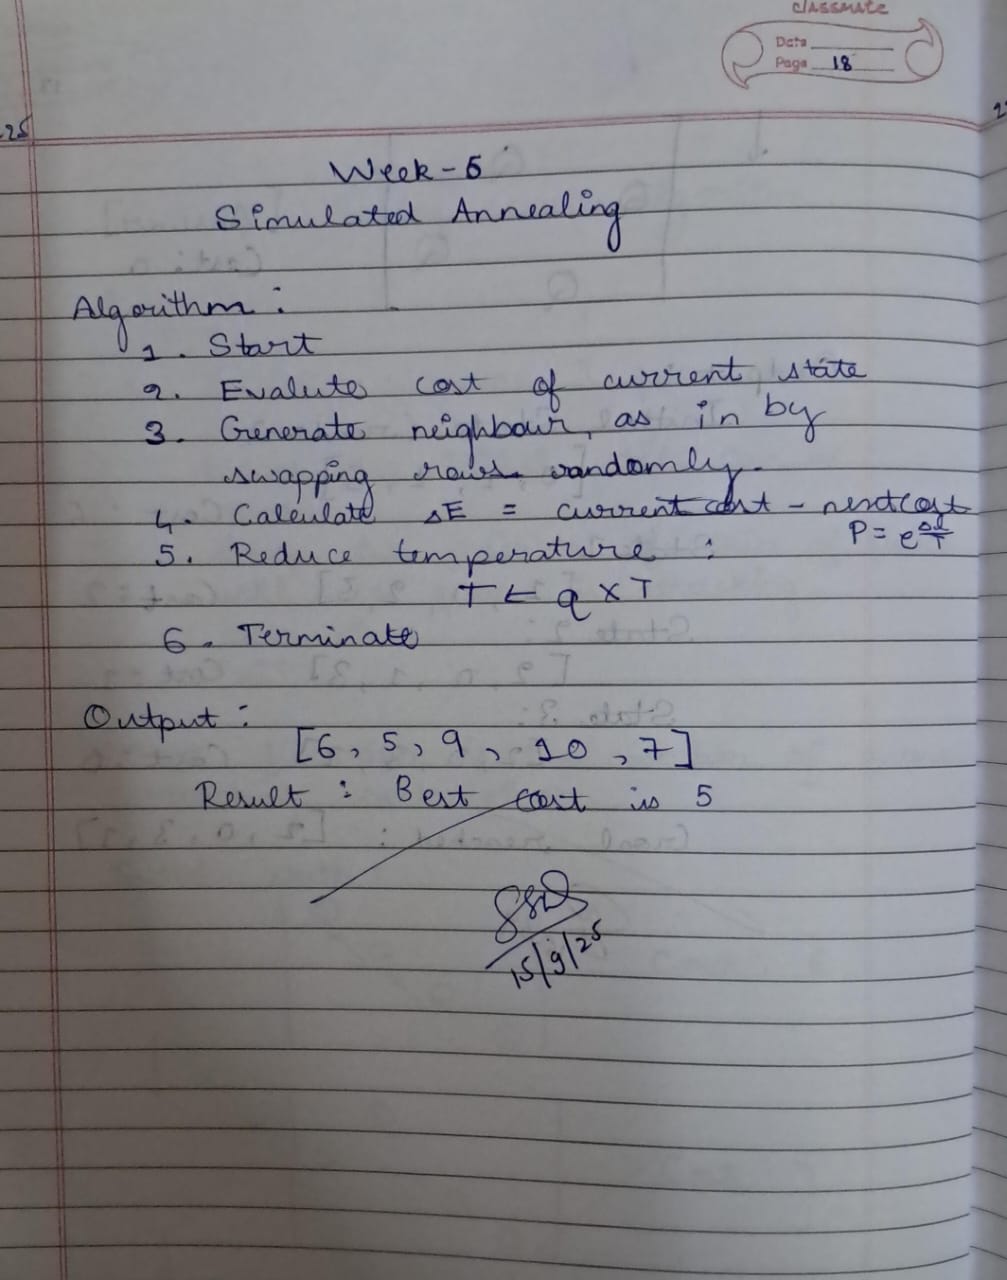 classmate
Date
Page 18
25
Week-5
Simulated Annealing
Algorithm:
1. Start
2. Evalute cost of current state
3. Generate neighbour, as in by
swapping rows randomly.
4. Calculate ΔE = current cost - nextcost
5. Reduce temperature :
T ← a × T
6. Terminate
Output:
[6, 5, 9, 10, 7]
Result: Best cost is 5
15/9/25